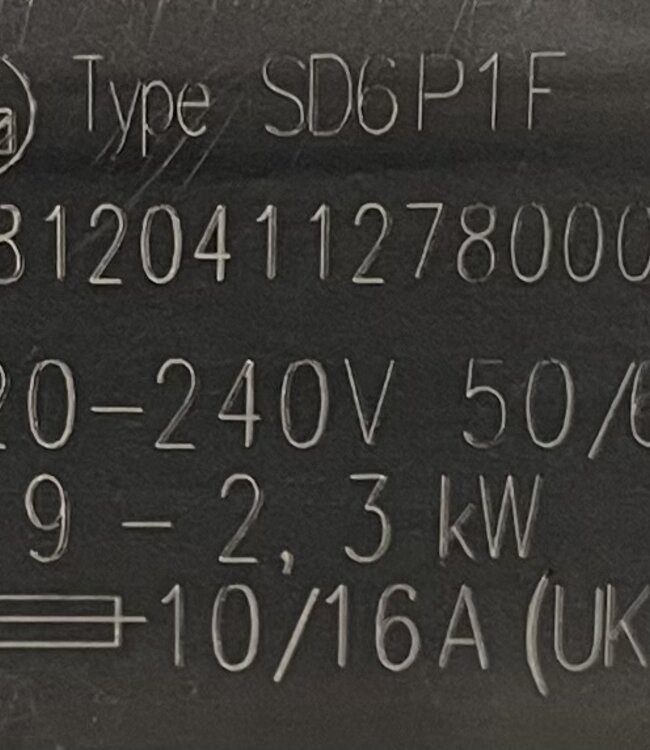 Type SD6P1F
3120411278000
20-240V 50/6
9 - 2,3 kW
10/16A (UK